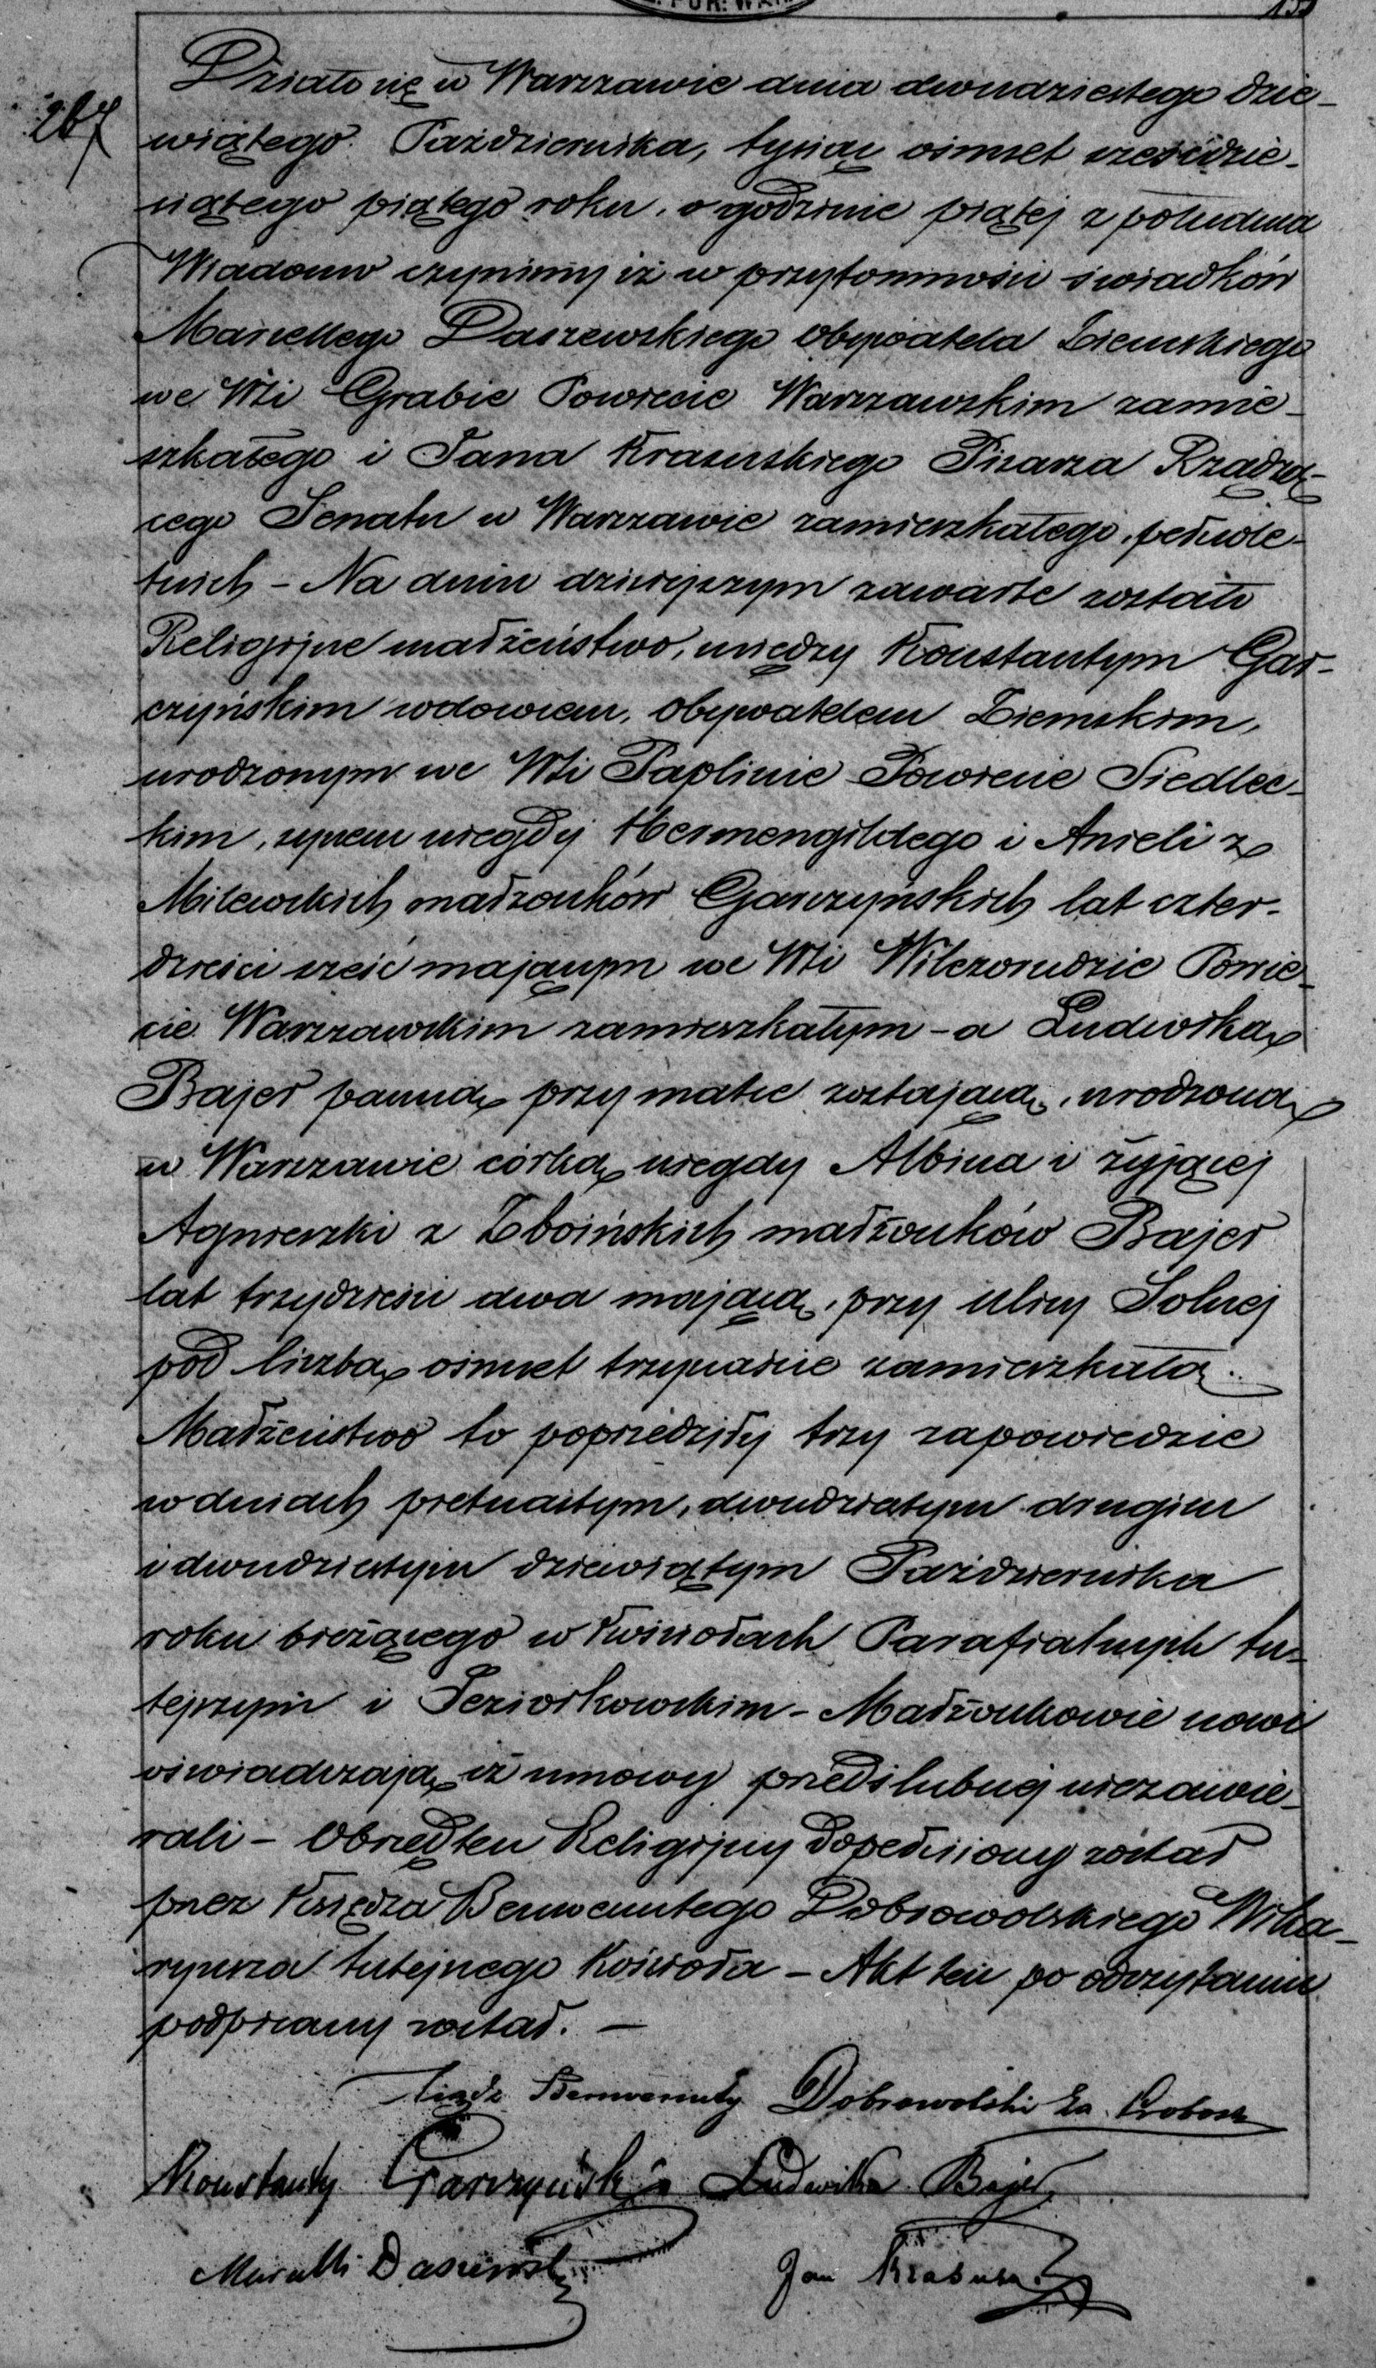 267
Działo się w Warszawie dnia dwudziestego dzie-
wiątego Października, tysiąc ośmset sześćdzie-
siątego piątego roku, o godzinie piątej z południa
Wiadomo czynimy iż w przytomności świadków
Marcellego Daszewskiego Obywatela Ziemskiego
we Wsi Grabie Powiecie Warszawskim zamie-
szkałego i Jana Krasuskiego Pisarza Rządzą-
cego Senatu w Warszawie zamieszkałego, pełnole-
tnich – Na dniu dzisiejszym zawarte zostało
Religijne małżeństwo, między Konstantym Gar-
czyńskim wdowcem, Obywatelem Ziemskim,
urodzonym we Wsi Paplinie Powiecie Siedlec-
kim, synem niegdy Hermenegildego i Anieli z
Milewskich małżonków Garczyńskich lat czter-
dzieści sześć mającym we Wsi Wilczorudzie Powie-
cie Warszawskim zamieszkałym – a Ludwiką
Bajer panną przy matce zostającą, urodzoną
w Warszawie córką niegdy Albina i żyjącej
Agnieszki z Zboińskich małżonków Bajer
lat trzydzieści dwa mającą, przy ulicy Solnej
pod liczbą ośmset trzynaście zamieszkałą.
Małżeństwo to poprzedziły trzy zapowiedzie
w dniach piętnastym, dwudziestym drugim
i dwudziestym dziewiątym Października
roku bieżącego w Kościołach Parafialnych tu-
tejszym i Jeziorkowskim – Małżonkowie nowi
oświadczają iż umowy przedślubnej niezawie-
rali – Obrzęd ten Religijny dopełniony został
przez Księdza Benwenutego Dobrowolskiego Wika-
ryusza tutejszego Kościoła – Akt ten po odczytaniu
podpisany został. –
Ksiądz Benwenuty Dobrowolski Za Probosz
Konstanty Garczyński Ludwika Bajer
Marcelli Daszewski Jan Krasuski